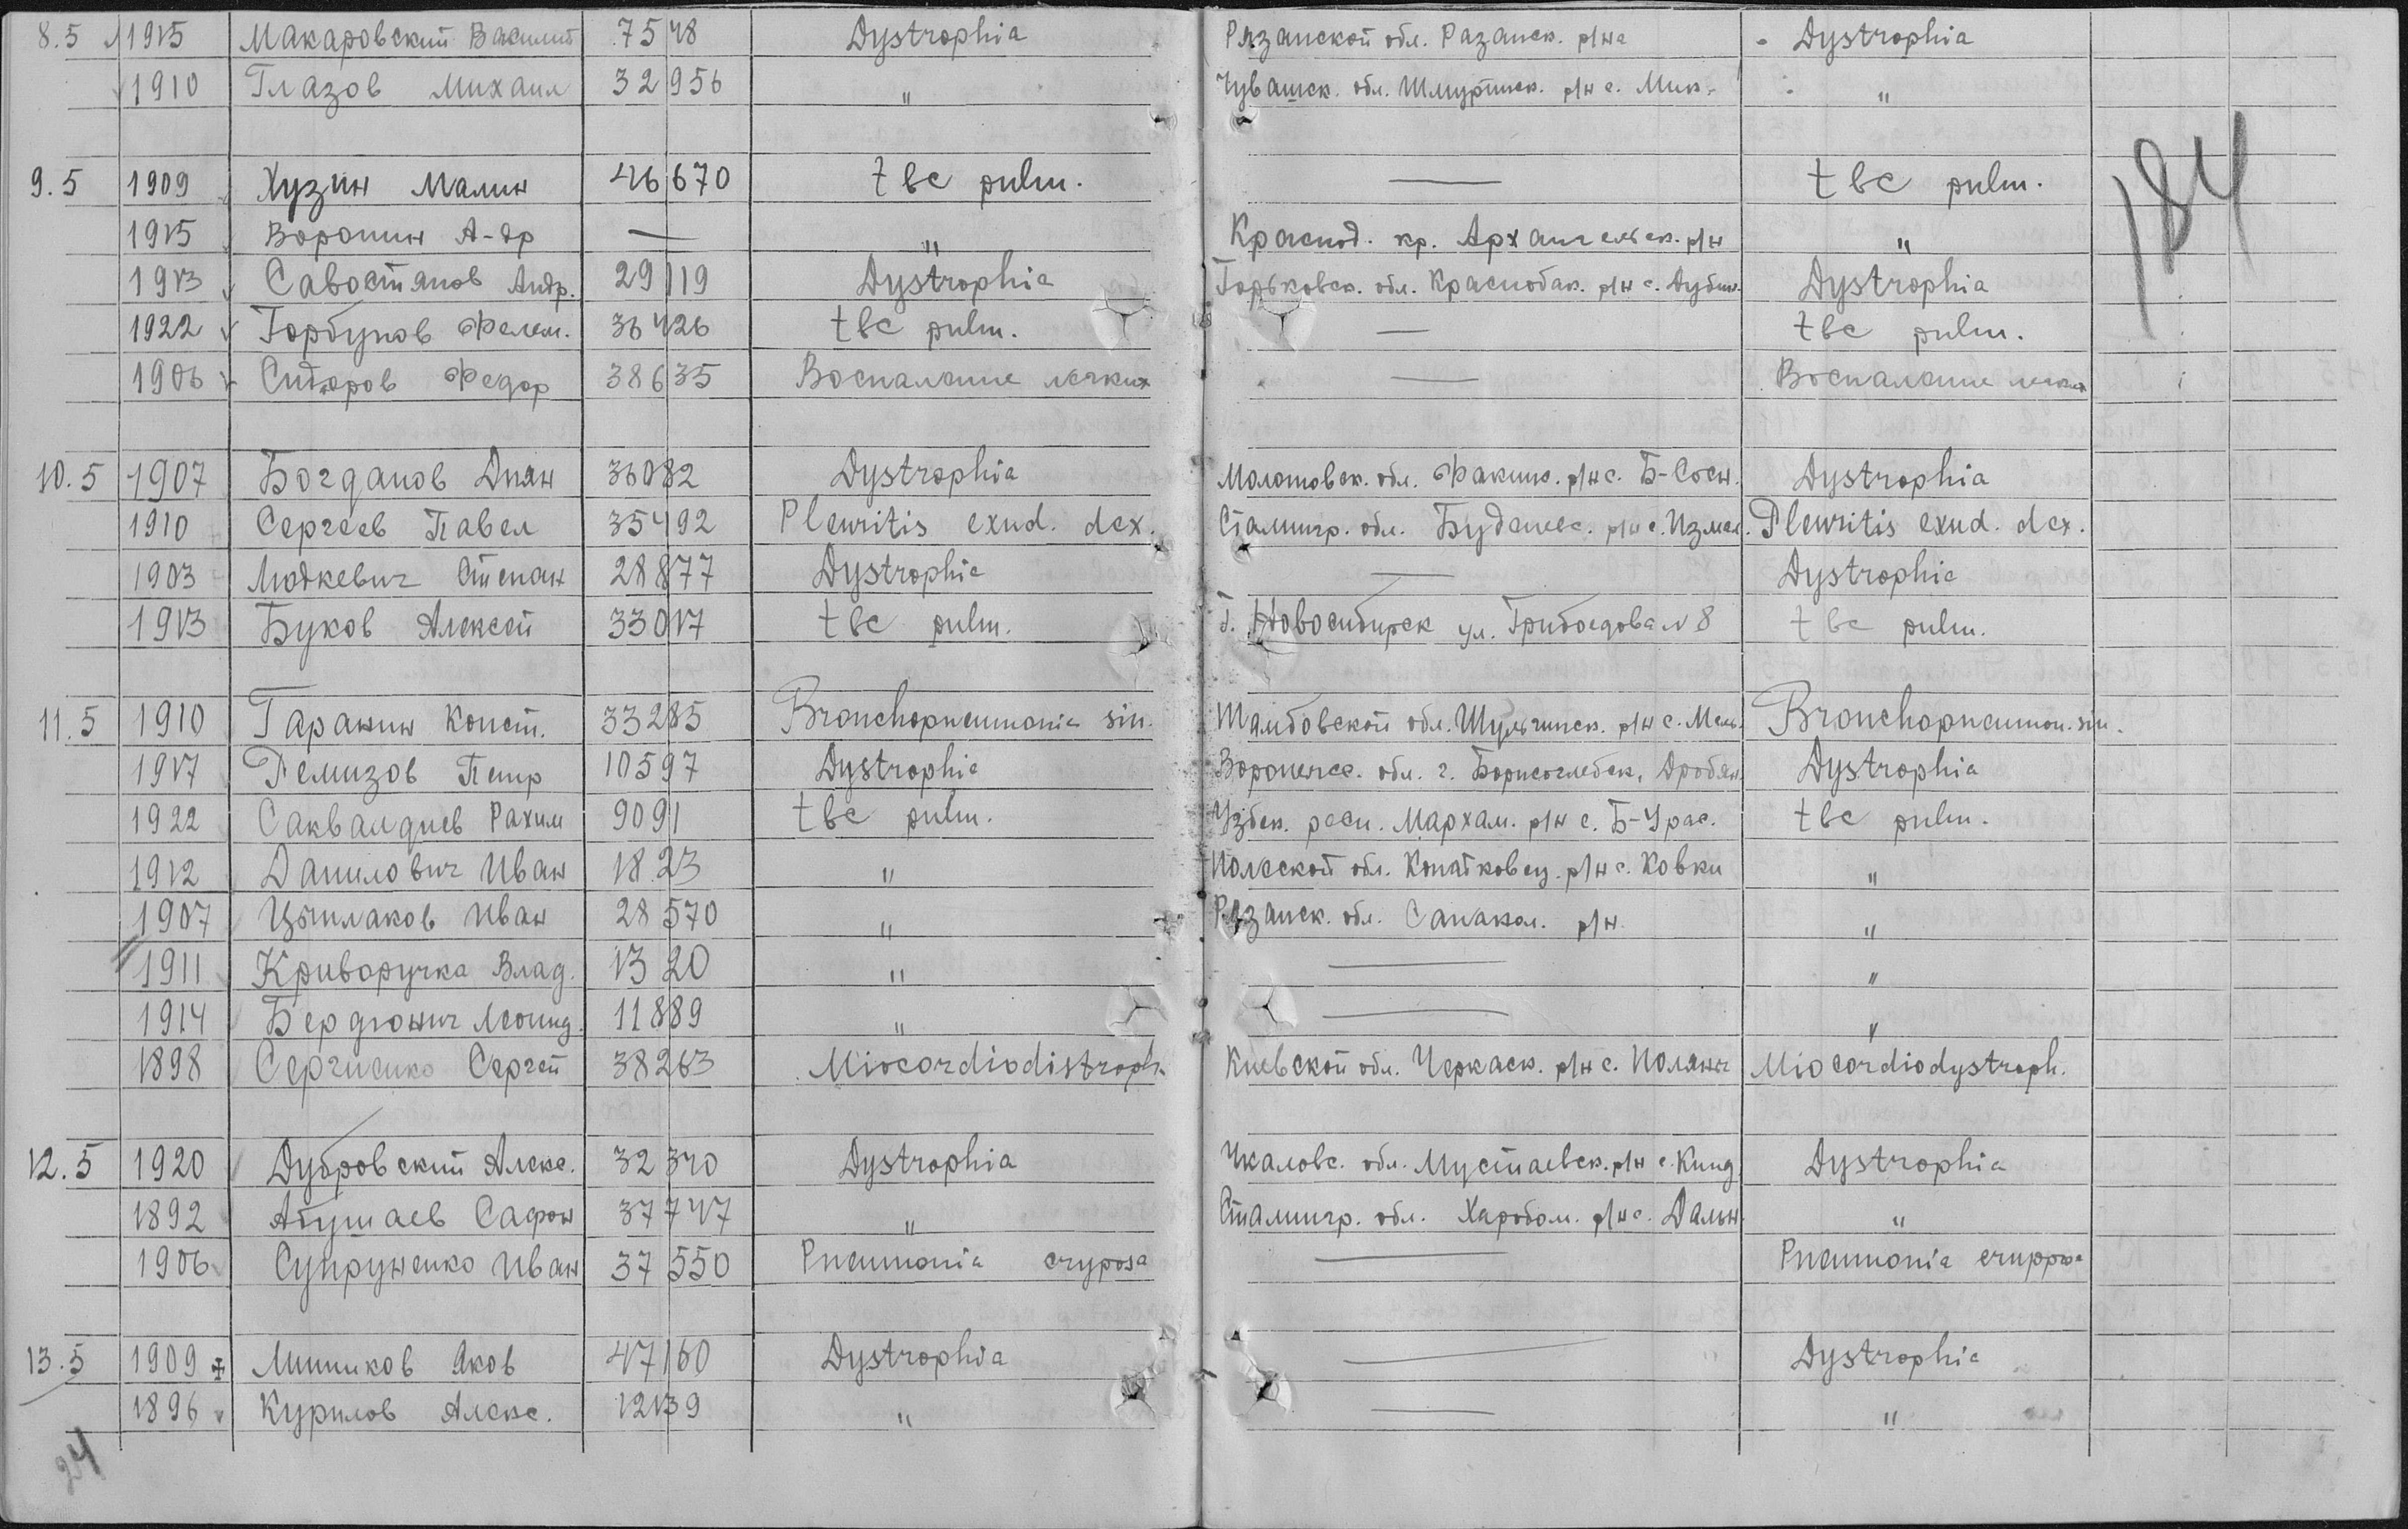 8.5 1915 Макаровский Василий 7548 Dystrophia Рязанской обл. Разанск. р/на - Dystrophia
1910 Глазов Михаил 32956 " Чувашск. обл. Шмуршск. р/н с. Мик. "
9.5 1909 Хузин Малин 46670 tbc pulm. — tbc pulm.
1915 Воронин А-др — " Краснод. кр. Архангельск. р/н "
1913 Савостянов Андр. 29119 Dystrophia Горьковск. обл. Краснобак. р/н с. Дубин. Dystrophia
1922 Горбунов Филем. 36426 tbc pulm. — tbc pulm.
1906 Ситяров Федор 38635 Воспаление легких — Воспаление легких
10.5 1907 Богданов Диян 36082 Dystrophia Молотовск. обл. Факинс. р/н с. Б-Сосн. Dystrophia
1910 Сергеев Павел 35492 Pleuritis exud. dex. Сталингр. обл. Буденес. р/н с. Измал. Pleuritis exud. dex.
1903 Модкевич Степан 28877 Dystrophia — Dystrophia
1913 Буков Алексей 33017 tbc pulm. Г. Новосибирск ул. Грибоедова N 8 tbc pulm.
11.5 1910 Гаранин Конст. 33285 Bronchopneumonia sin. Тамбовской обл. Шульгинск. р/н с. Мель. Bronchopneumon. sin.
1917 Ремизов Петр 10597 Dystrophia Воронежс. обл. г. Борисоглебск, Дробян. Dystrophia
1922 Саквалдиев Рахим 9091 tbc pulm. Узбек. респ. Мархам. р/н с. Б-Урас. tbc pulm.
1912 Данилович Иван 1823 " Полеской обл. Копатковец. р/н с. Ковки "
1907 Цыплаков Иван 28570 " Рязанск. обл. Сапажол. р/н. "
1911 Криворучка Влад. 1320 " — "
1914 Бердюнич Леонид. 11889 " — "
1898 Сергиенко Сергей 38263 Miocordiodistroph. Киевской обл. Черкаск. р/н с. Полянч Miocordiodystroph.
12.5 1920 Дубровский Алекс. 32340 Dystrophia Чкаловс. обл. Мустаевск. р/н с. Кинд. Dystrophia
1892 Атушаев Сафон 37747 " Сталингр. обл. Харобол. р/н с. Дальн. "
1906 Супруненко Иван 37550 Pneumonia cryposa — Pneumonia crupposa
13.5 1909 Минников Яков 47160 Dystrophia — Dystrophia
1896 Курилов Алекс. 12139 " — "
184
24